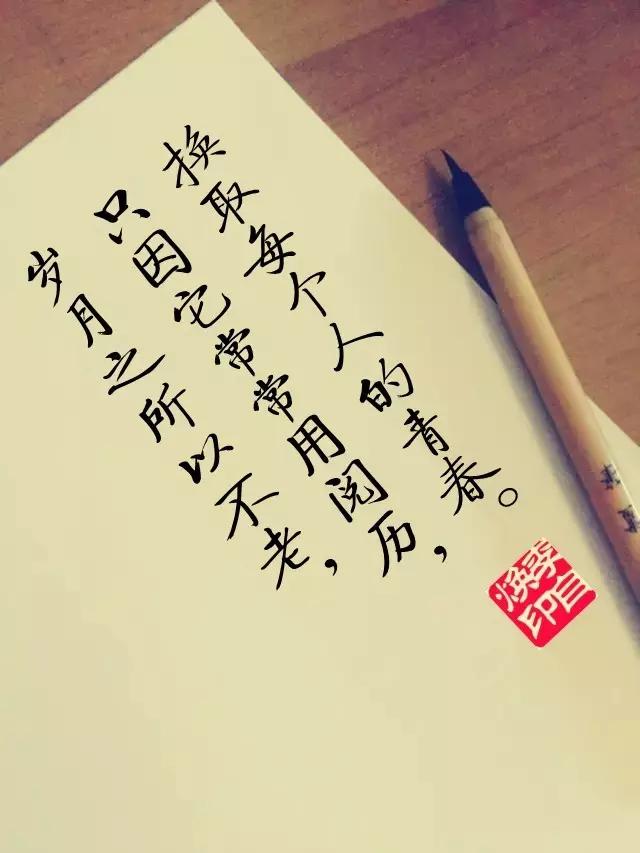 岁月之所以不老，
只因它常常用阅历，
换取每个人的青春。
李自焕印